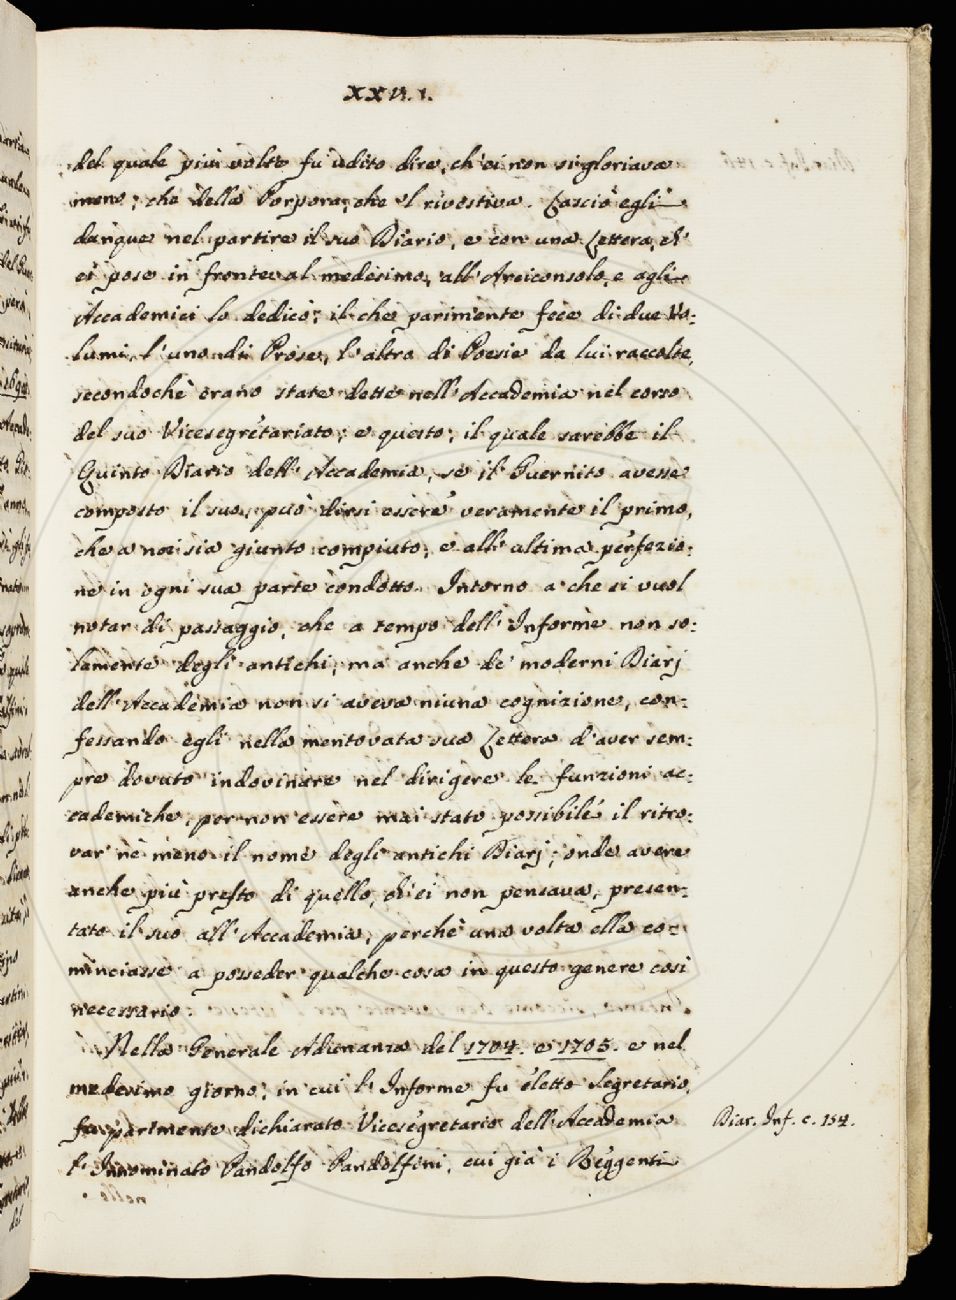 XXVI.
del quale più volte fù udito dire, ch'ei non si gloriava
meno, che della Porpora, che 'l rivestiva. Lasciò egli
dunque nel partire il suo Diario, e con una Lettera, ch'
ei pose in fronte al medesimo, all'Arciconsolo, e agli
Accademici lo dedicò; il che parimente fece di due Vo-
lumi, l'uno di Prose, l'altro di Poesie da lui raccolte,
secondochè erano state dette nell'Accademia nel corso
del suo Vicesegretariato; e questo, il quale sarebbe il
Quinto Diario dell'Accademia, se il Guernito avesse
composto il suo, può dirsi essere veramente il primo,
che a noi sia giunto compiuto, e all'ultima perfezio-
ne in ogni sua parte condotto. Intorno a che si vuol
notar di passaggio, che a tempo dell'Informe non so-
lamente degli antichi, ma anche de' moderni Diarj
dell'Accademia non si aveva niuna cognizione, con-
fessando egli nella mentovata sua Lettera d'aver sem-
pre dovuto indovinare nel dirigere le funzioni ac-
cademiche, per non essere mai stato possibile il ritro-
var nè meno il nome degli antichi Diarj; onde avere
anche più presto di quello, ch'ei non pensava, presen-
tato il suo all'Accademia, perchè una volta ella co-
minciasse a posseder qualche cosa in questo genere così
necessario
Nella Generale Adunanza del 1704. e 1705. e nel
medesimo giorno, in cui l'Informe fu eletto Segretario,
fu parimente dichiarato Vicesegretario dell'Accademia
Diar. Inf. c. 154.
l'Innominato Pandolfo Pandolfini, cui già i Reggenti